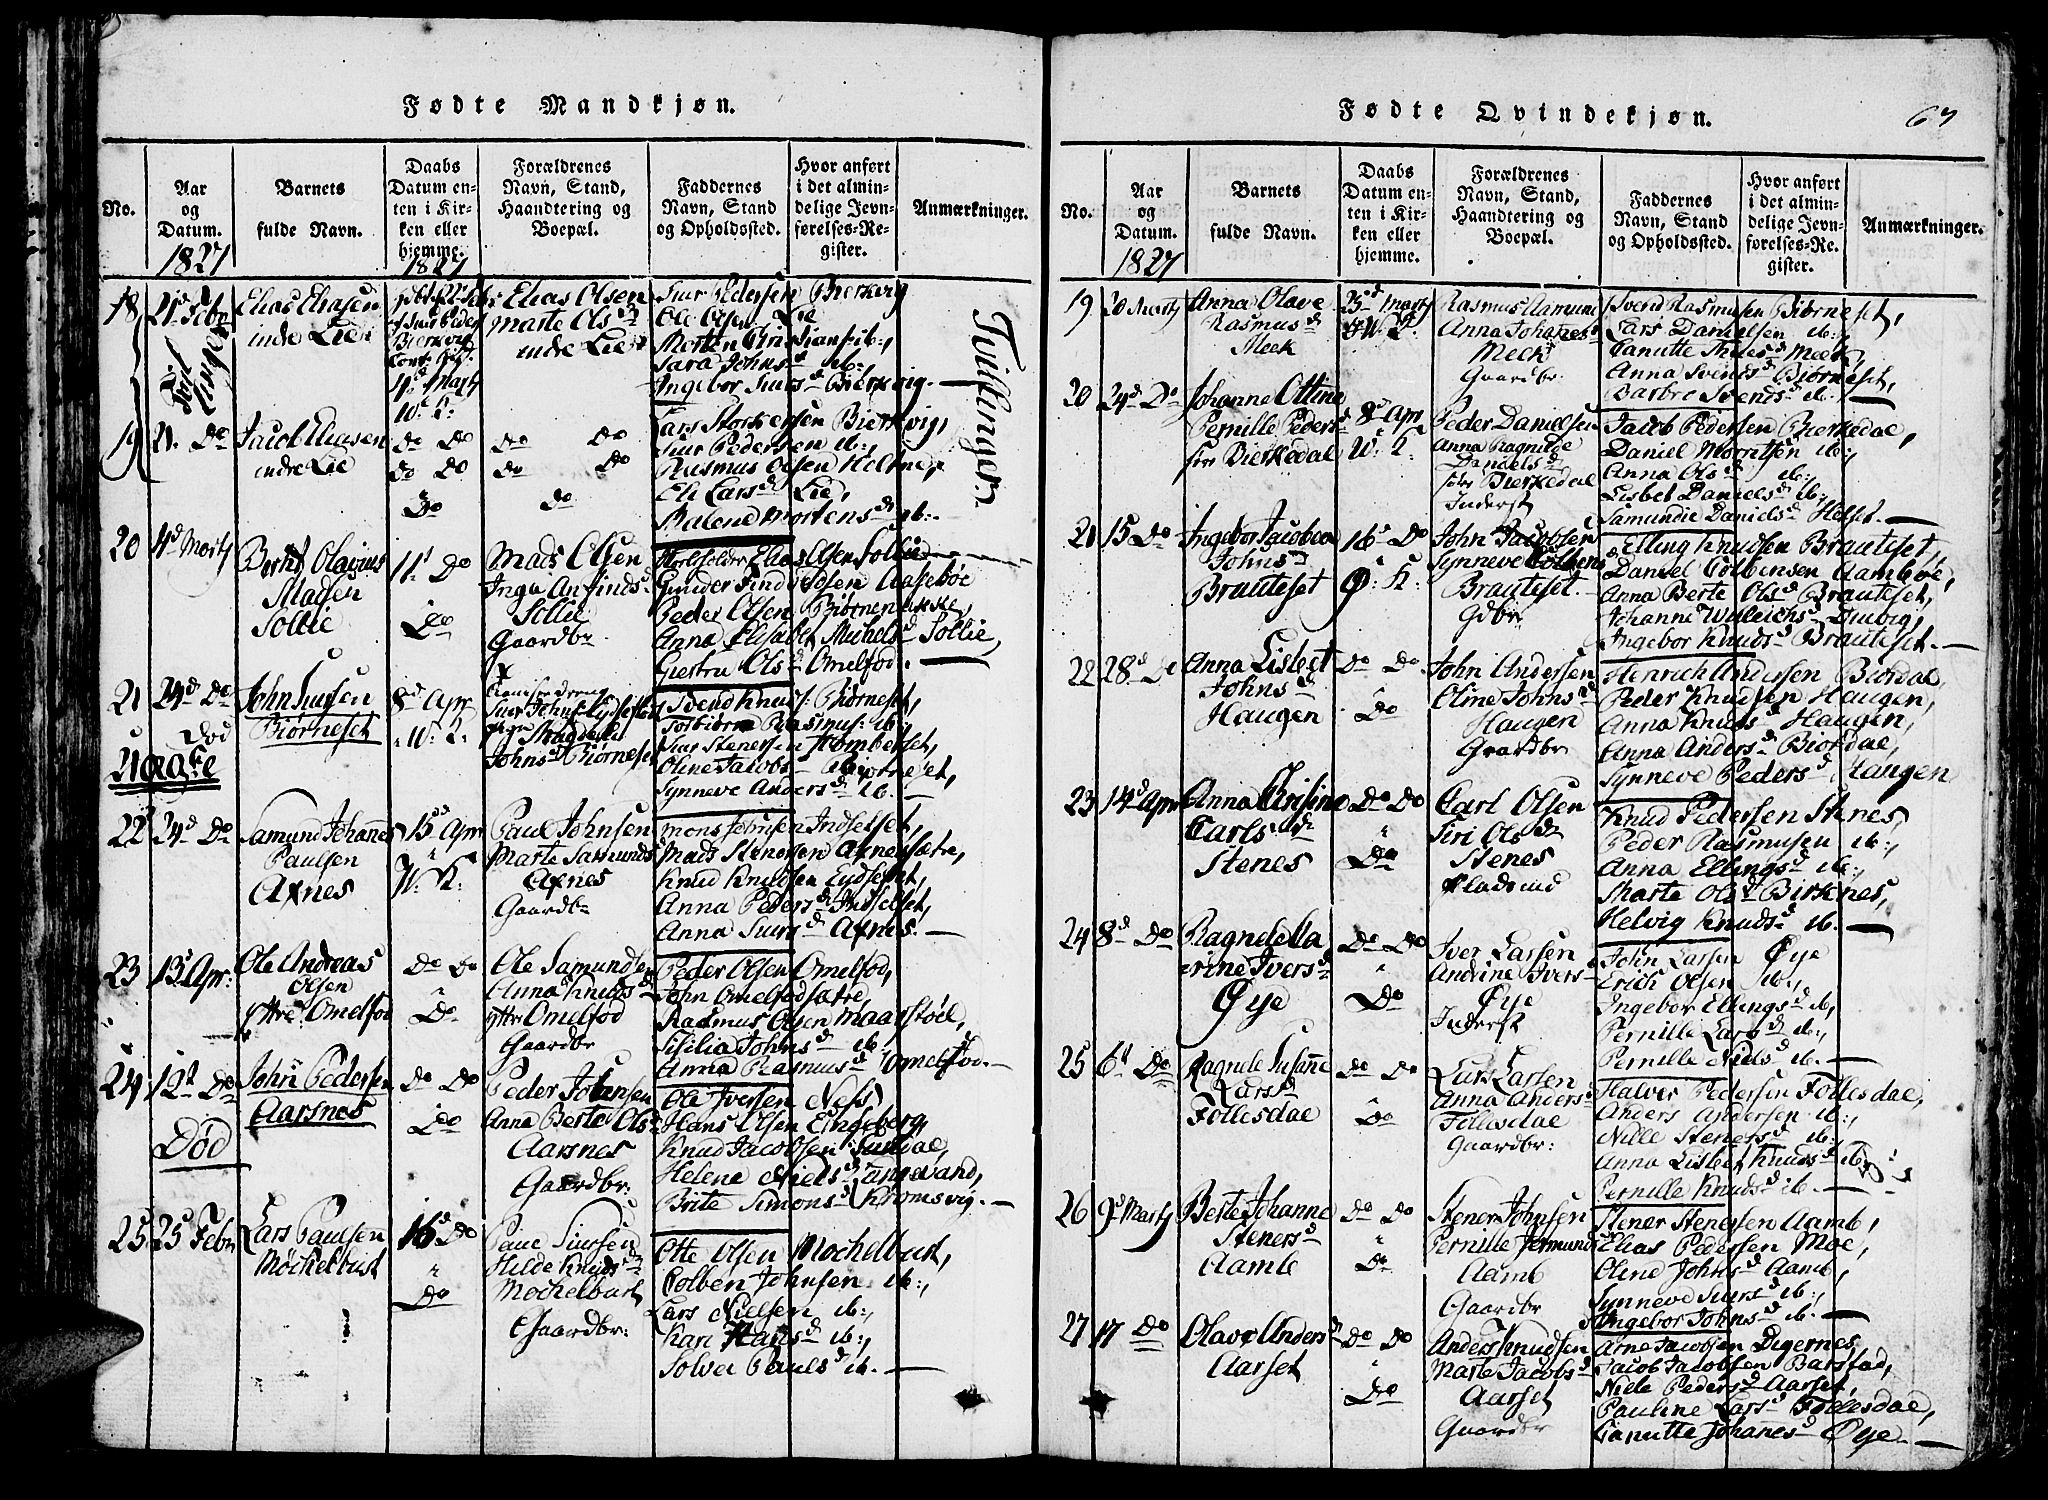 Fødte Mandkjøn.
No.
Aar
og
Datum.
1827
Barnets
fulde Navn.
Daabs
Datum en-
ten i Kir-
ken eller
hjemme.
1827
Forældrenes
Navn, Stand,
Haandtering og
Boepæl.
Faddernes
Navn, Stand
og Opholdssted.
Hvor anført
i det almin-
delige Jevn-
førelses-Re-
gister.
Anmærkninger.
18
21de Febr
Elias Eliasen
indre Lie
4de Marts
W: K:
Elias Olsen
Marte Olsd
indre Lie
Siur Pedersen Bierkvig
Ole Olsen Lie
Sara Johnsd ib:,
Ingebor Siursd Bierkvig.—
Tvillinger.
19
21. Do
Jacob Eliasen
indre Lie
Do Do
Do Do
Do
Do Do
Do Do
Do
Lars Storkersen Bierkvig,
Siur Pedersen ib:,
Rasmus Olsen Helene,
Eli Larsd Lie,
Malene Mortensd ib:—
20
4d Marts
Bernt Olaius
Madsen
Sollie
11t Do
Do
Mads Olsen
Sollie
Gaardbr
Elias Olsen Sollie
Gunder Findersen Aasebøe
Peder Olsen Biørnebakke,
Anna Elisabet Michelsd Sollie,
Giertru Olsd Omelfod.—
21
24d Do
Død
Uægte
John Siursen
Biørneset
8d Apr
W: K:
Johnsd Biørneset
Svend Knuds: Biørneset,
Torbiørn Rasmus: ib:
Siur Stenersen
Oline Jacobsd Biørneset,
Synneve Andersd ib.—
22
24d Do
Samund Johannes
Paulsen
Axnes
15d Apr
W: K:
Paul Johnsen
Marte Samundsd
Axnes
Gaardbr
Mons Johnsen Indselset,
Mads Stenersen Axnessætre,
Knud Knudsen Eydsemt,
Anna Pedersd Indselset,
Anna Siursd Axnes.—
23
13d Apr:
Ole Andreas
Olsen
Yttre Omelfod
Do Do
Do
Ole Samundsen
Anna Knudsd
Yttre Omelfod
Gaardbr
Peder Olsen Omelfod,
John Omelfodsætre,
Rasmus Olsen Maarstöd,
Sisilia Johnsd ib:,
Anna Rasmusd Omelfod.—
24
12t Do
Død
John Pedersen
Aarsnes
Do Do
Do
Peder Johansen
Anne Berte Olsd
Aarsnes
Gaardbr:
Ole Iversen Nes,
Hans Olsen Engeberg,
Knud Jacobsen Sundal,
Helene Nielsd Tangevand,
Brite Simonsd Kromsvig.—
25
25 Febr
Lars Paulsen
Møchelbust
16d Do
Do
Paul Siursen
Hilde Knudsd
Mochelbust
Gaardbr:
Otte Olsen Mochelbust,
Colben Johnsen ib:,
Lars Nielsen ib:,
Kari Hansd ib:,
Solvei Paulsd ib.—
Fødte Qvindekjøn.
67
No.
Aar
og
Datum.
1827
Barnets
fulde Navn.
Daabs
Datum en-
ten i Kir-
ken eller
hjemme.
Forældrenes
Navn, Stand,
Haandtering og
Boepæl.
Faddernes
Navn, Stand
og Opholdssted.
Hvor anført
i det almin-
delige Jevn-
førelses-Re-
gister.
Anmærkninger.
19
20 Marts
Anna Olave
Rasmusd
Meek
25d Marts
W: K:
Rasmus Aamund
Anna Johannesd
Meek
Gaardbr.
Svend Rasmusen Biørneset,
Lars Danielsen ib:,
Canutte Meek,
Anna Svendsd Biørneset,
Barbro Svendsd ib:—
20
24d Do
Johanne Ottine
Pernille Pedersd
Bierkedal
8d Apr
W: K:
Peder Danielsen
Anna Ragnilde
Danielsd
Bierkedal
Inderst
Jacob Pedersen Bierkedal,
Daniel Moritsen ib:,
Anna Olsd ib:,
Lisbet Danielsd ib:,
Samundie Danielsd Helset.—
21
15 Do
Ingebor Jacobea
Johnsd
Brauteset
16d Do
Ø: K:
John Jacobsen
Synneve Colbensd
Brauteset
Gdbr
Elling Knudsen Brauteset,
Daniel Colbensen Aambøe,
Anna Berte Olsd Brauteset,
Johanne
Ingebor Knudsd Brauteset.—
22
28d Do
Anna Lisbet
Johnsd
Haugen
Do Do
Do
John Andersen
Oline Johnsd
Haugen
Gaardbr
Henrich Andersen Biordal,
Peder Knudsen Haugen,
Anna Knudsd Haugen,
Anna Andersd Biordal,
Synneve Pedersd Haugen
23
14d Apr
Anna Krisine
Carlsd
Stenes
Do Do
Do
Carl Olsen
Siri Olsd
Stenes
Pladsmd
Knud Pedersen Stenes,
Peder Rasmusen ib:,
Anna Ellingsd ib:,
Marte Olsd Birknes,
Helvig Knudsd ib.—
24
8d Do
Ragnilda
Iversd
Øye
Do Do
Do
Iver Larsen
Andrine Iversd
Øye
Inderst
John Larsen Øye
Erich Olsen ib:,
Ingebor Ellingsd ib,
Pernille Larsd ib:,
Pernille Nielsd ib.—
25
6t Do
Ragnele Susanne
Larsd
Follesdal
Do Do
Do
Lars Larsen
Anna Andersd
Follesdal
Gaardbr:
Halver Pedersen Follesdal,
Anders Andersen ib:,
Nille Stenersd ib:,
Anna Lisbet Knudsd ib:
Pernille Knudsd ib.—
26
9d Marts
Berte Johanne
Stenersd
Aamb
Do Do
Do
Stener Johnsen
Pernille Jermundsd
Aamb
Gaardbr
Stener Stenersen Aamb,
Elias Pedersen Moe,
Oline Johnsd Aamb,
Synneve Siursd ib:,
Ingebor Johnsd ib.—
27
17 Do
Olave Andersd
Aarset
Do Do
Do
Anders Knudsen
Marte Jacobsd
Aarset
Gaardbr
Arne Jacobsen Digernes,
Jacob Jacobsen Barstad,
Niele Pedersd Aarset,
Pauline Larsd Follesdal,
Canutte Johanesd Øye.—